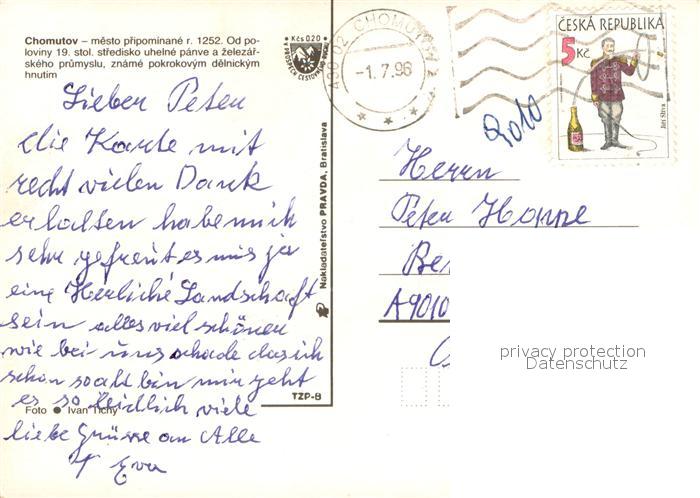 Chomutov – město připomínané r. 1252. Od po-
loviny 19. stol. středisko uhelné pánve a železář-
ského průmyslu, známé pokrokovým dělnickým
hnutím
Kčs 0,20
Lieber Peter
die Karte mit
recht vielen Dank
erhalten habe mich
sehr gefreut es mus ja
eine Herliche Landschaft
sein alles viel schöner
wie bei uns schade das ich
schon so alt bin mir geht
es so leidlich viele
liebe Grüsse an Alle
Eva
Foto ● Ivan Tichý
TZP-B
Nakladateľstvo PRAVDA, Bratislava
430 02 CHOMUTOV 2
-1.7.96
ČESKÁ REPUBLIKA
5 Kč
Jiří Slíva
9010
Herrn
Peter Hoppe
Be
A9010
privacy protection
Datenschutz